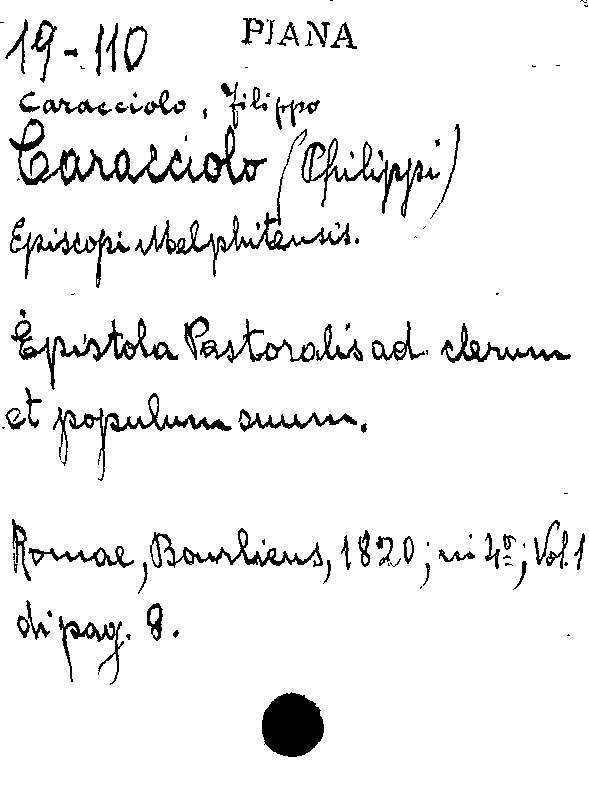 19-110 PIANA
Caracciolo, Filippo
Caracciolo (Philippi)
Episcopi Melphitensis.
Epistola Pastoralis ad clerum
et populum suum.
Romae, Bourlieus, 1820; in 4º; Vol. 1
di pag. 8.